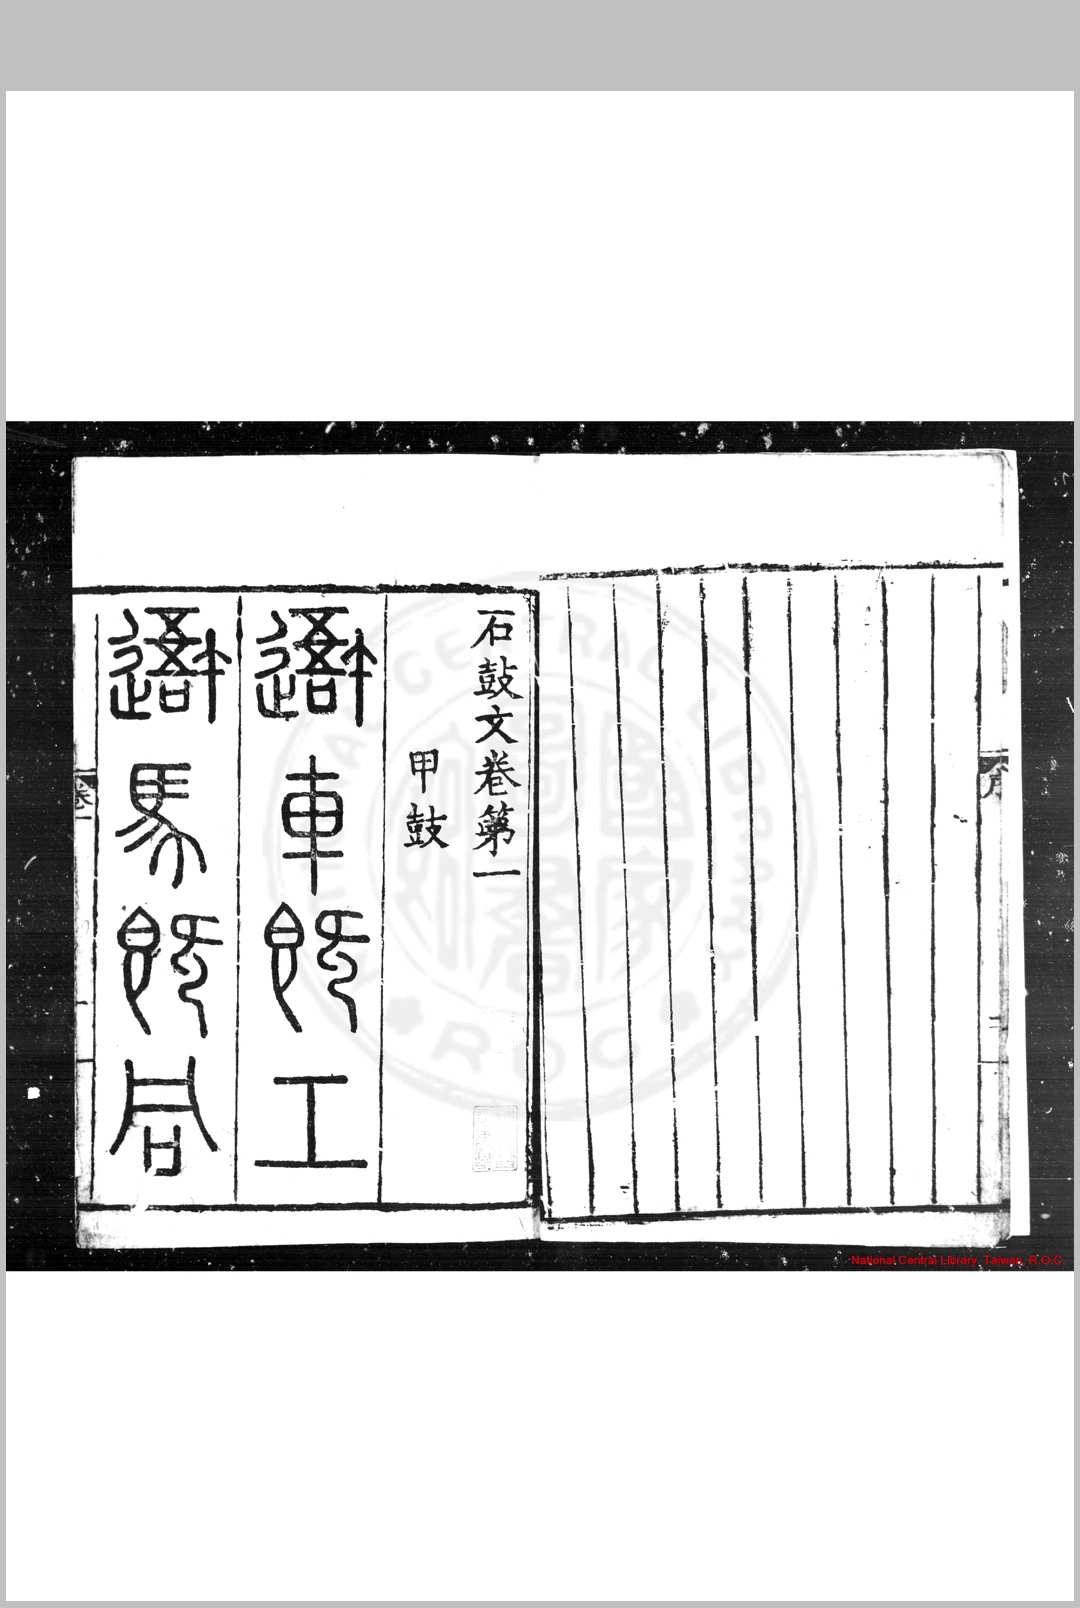 石鼓文卷第一
甲鼓
䢒車既工
䢒馬既同
National Central Library, Taiwan, R.O.C.